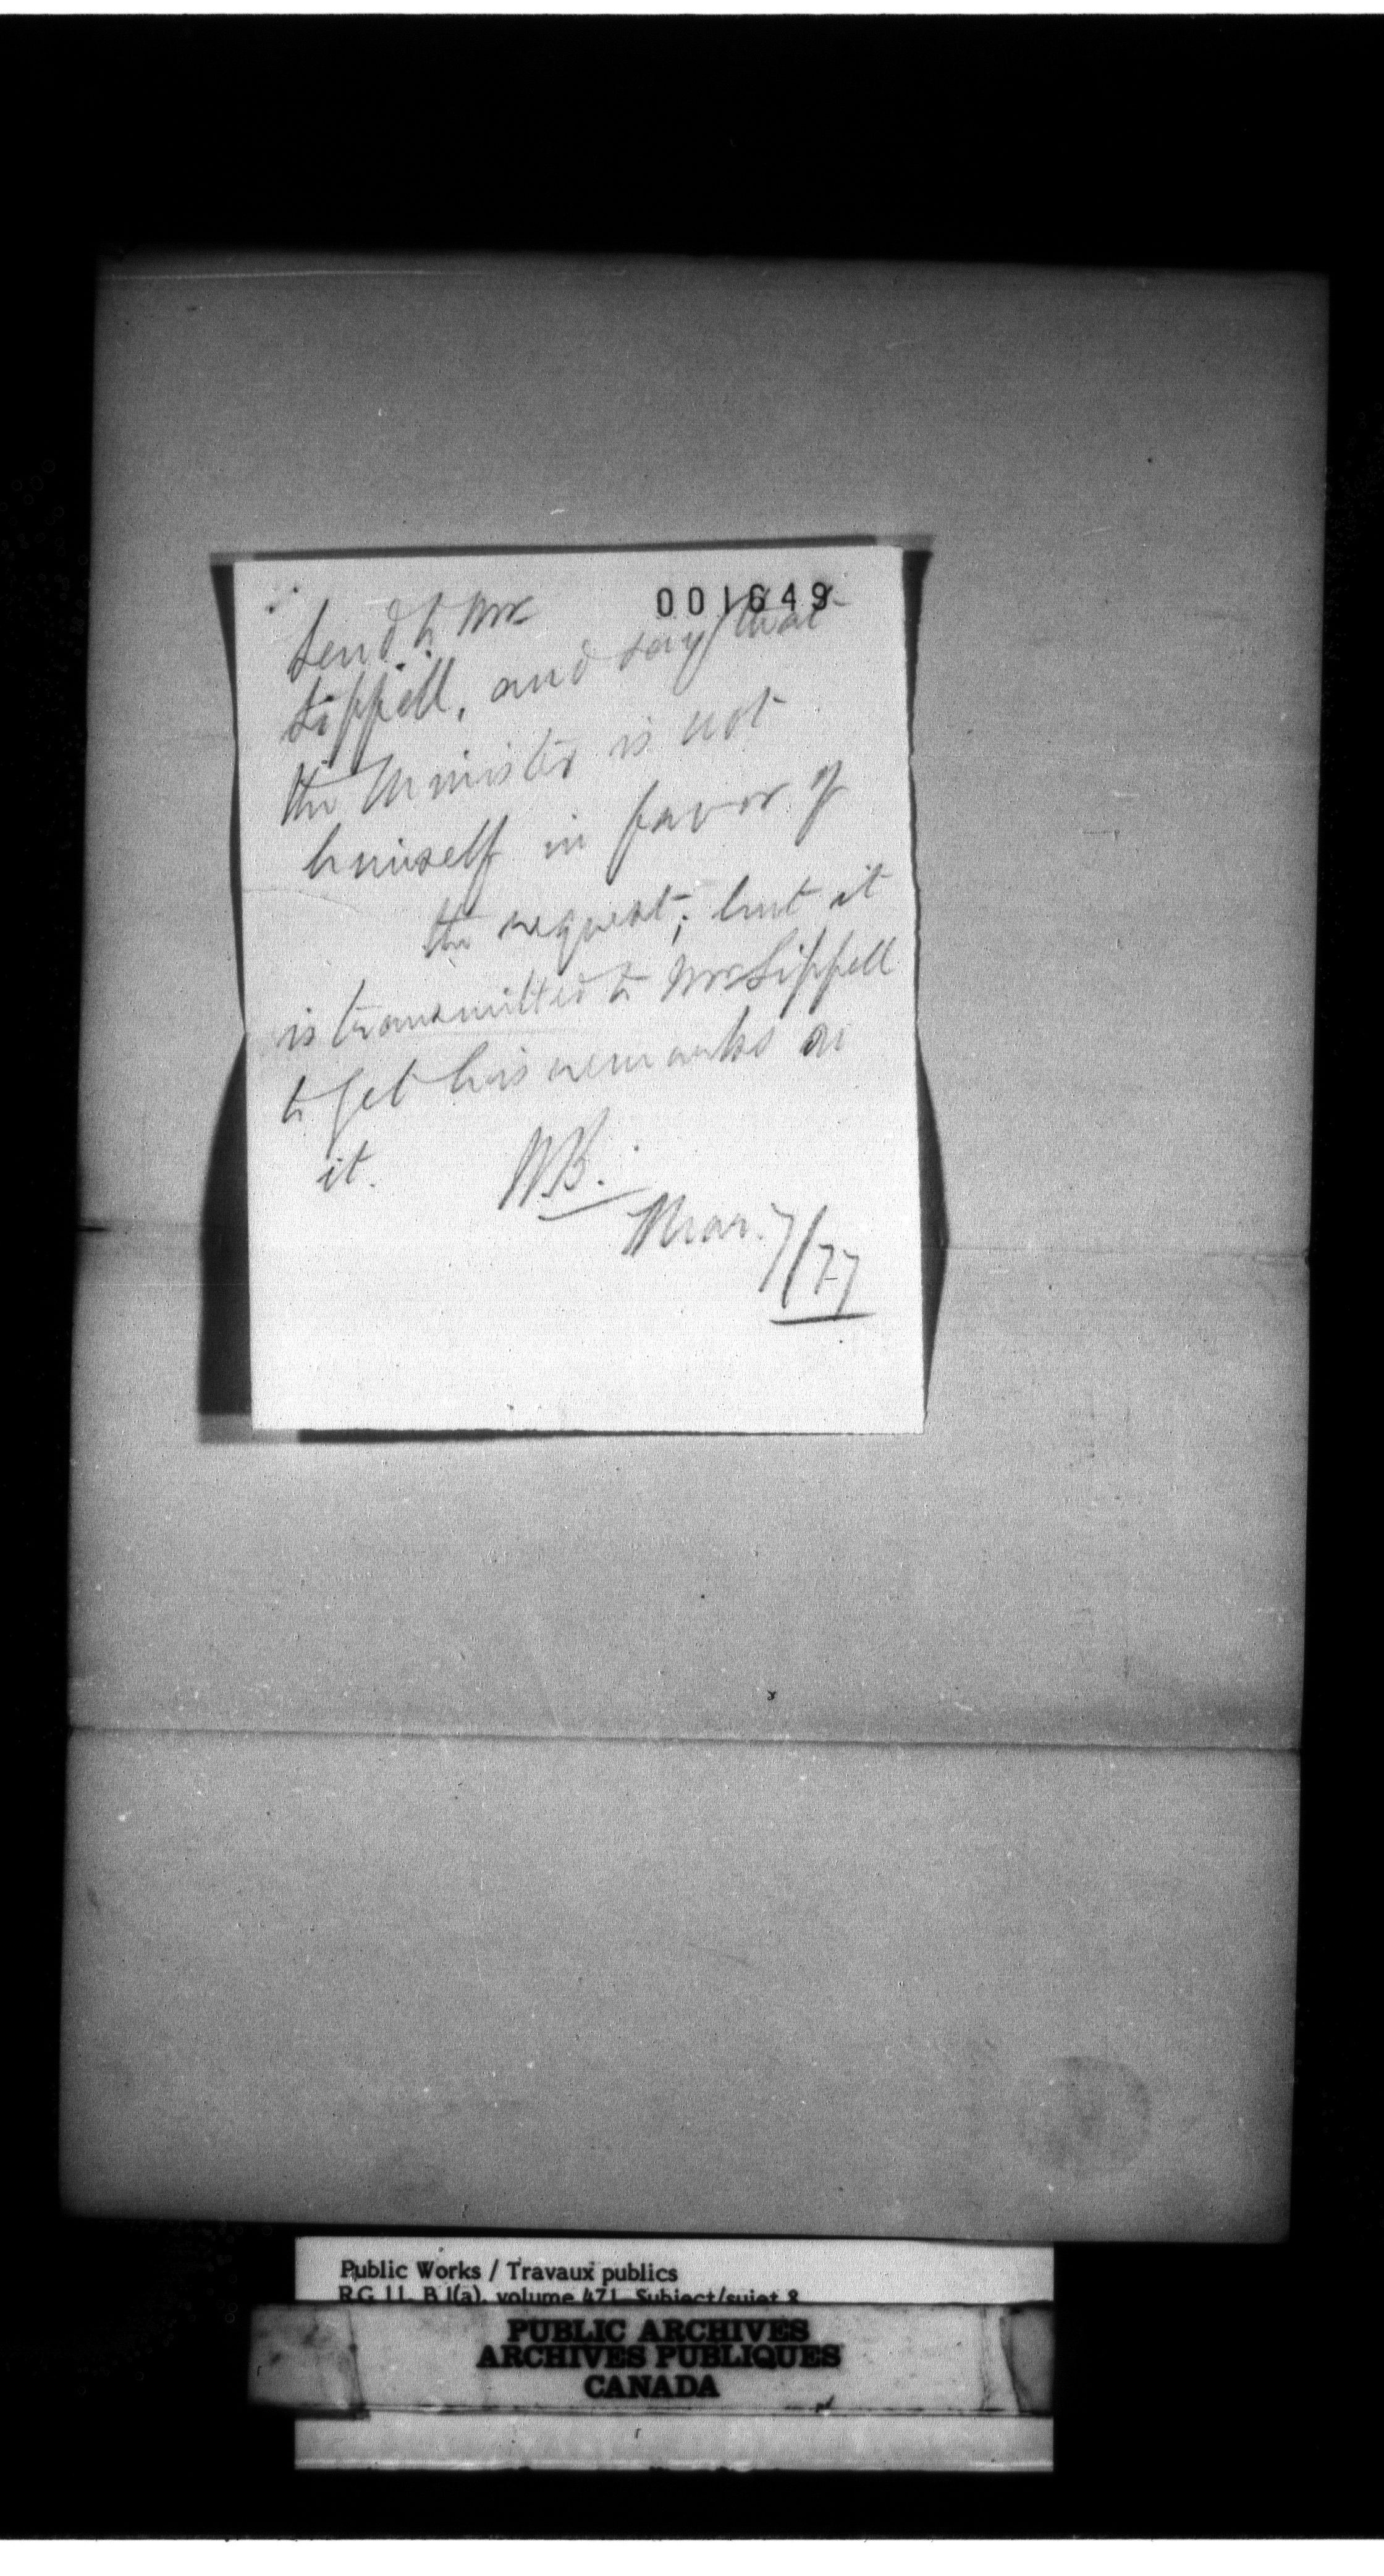 001649
Send to Mr
Sippell, and say that
the Minister is not
himself in favor of
the request; but it
is transmitted to Mr Sippell
to get his remarks on
it.
Mar. 7/77
Public Works / Travaux publics
RG 11, B 1(a), volume 471 Subject/sujet 8
PUBLIC ARCHIVES
ARCHIVES PUBLIQUES
CANADA